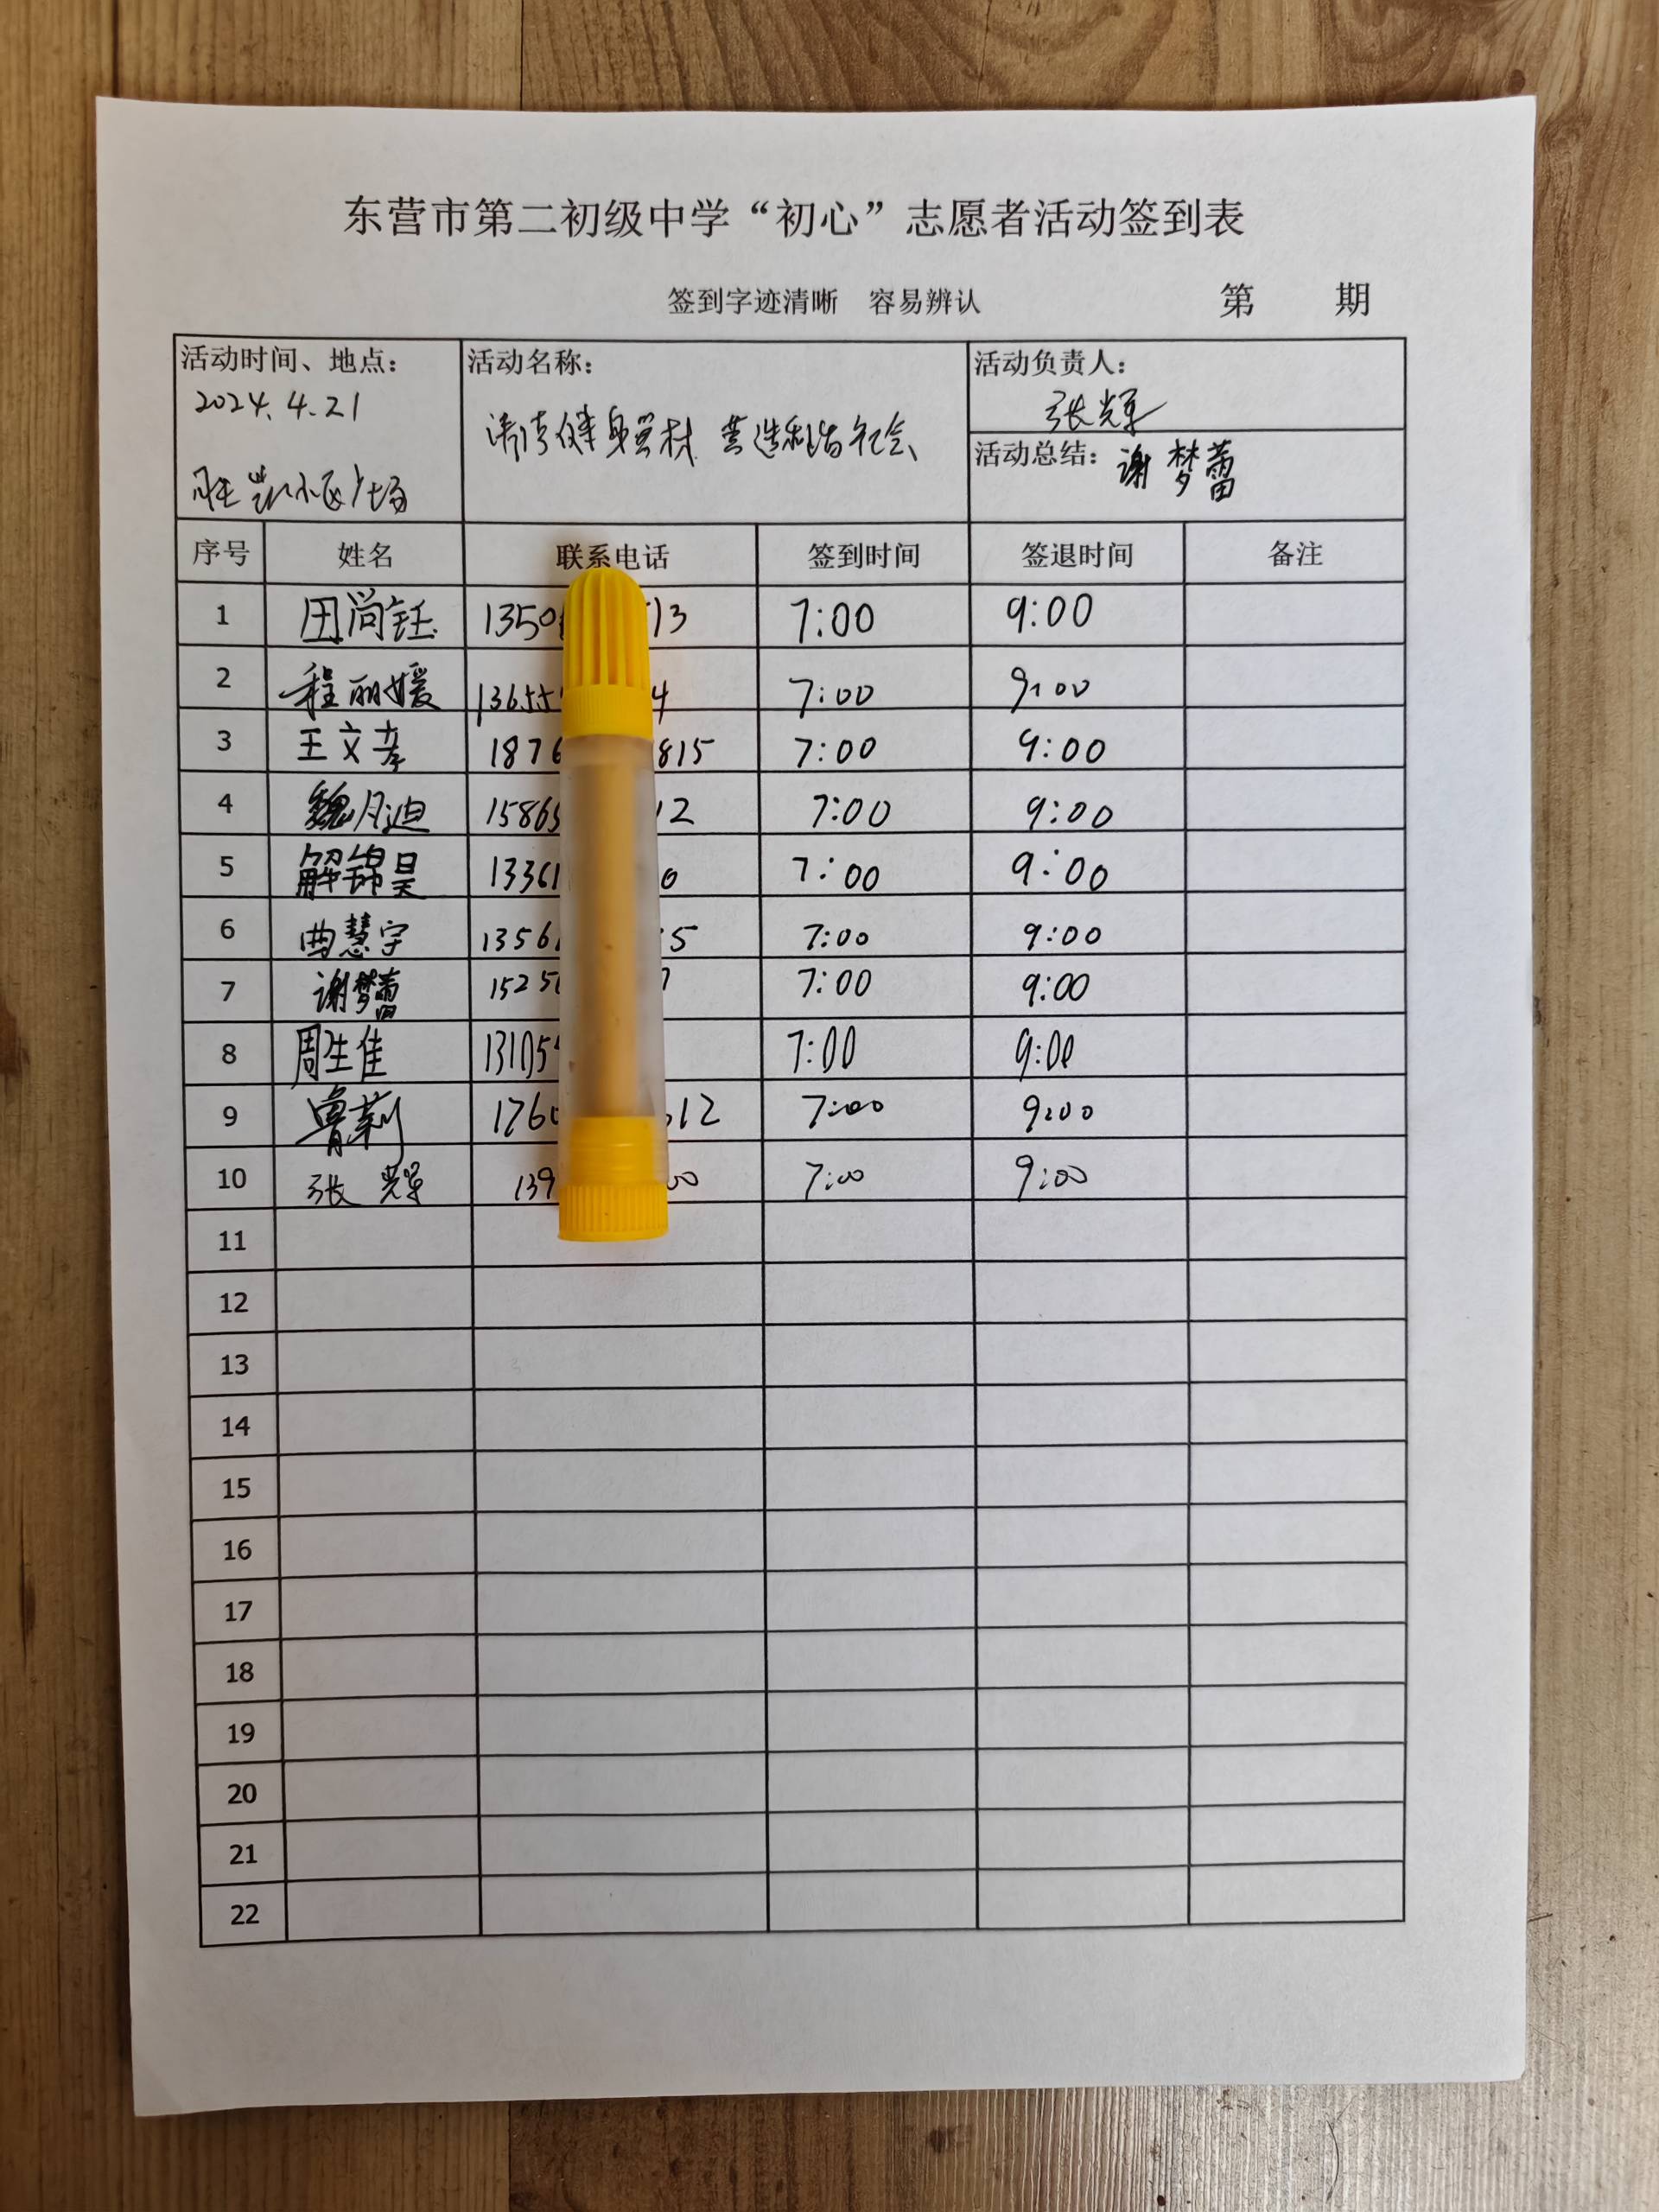 东营市第二初级中学“初心”志愿者活动签到表
签到字迹清晰 容易辨认 第 期
活动时间、地点：
2024.4.21
胜凯小区广场
活动名称：
清洁健身器材 营造和谐社会
活动负责人：
张辉
活动总结：谢梦蕾
序号 姓名 联系电话 签到时间 签退时间 备注
1 田尚钰 1350 13 7:00 9:00
2 程丽媛 13655 4 7:00 9:00
3 王文孝 1876 815 7:00 9:00
4 魏月迪 15865 12 7:00 9:00
5 解锦昊 13361 0 7:00 9:00
6 曲慧宇 1356 5 7:00 9:00
7 谢梦蕾 1525 7 7:00 9:00
8 周生佳 13105 7:00 9:00
9 鲁莉 1760 12 7:00 9:00
10 张辉 139 00 7:00 9:00
11
12
13
14
15
16
17
18
19
20
21
22